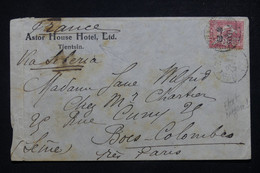 France
Astor House Hotel, Ltd.
Tientsin.
Via Siberia
Madame Jane
Chez Mr Chartier
25 Rue 25
Bois-Colombes
(Seine) près Paris